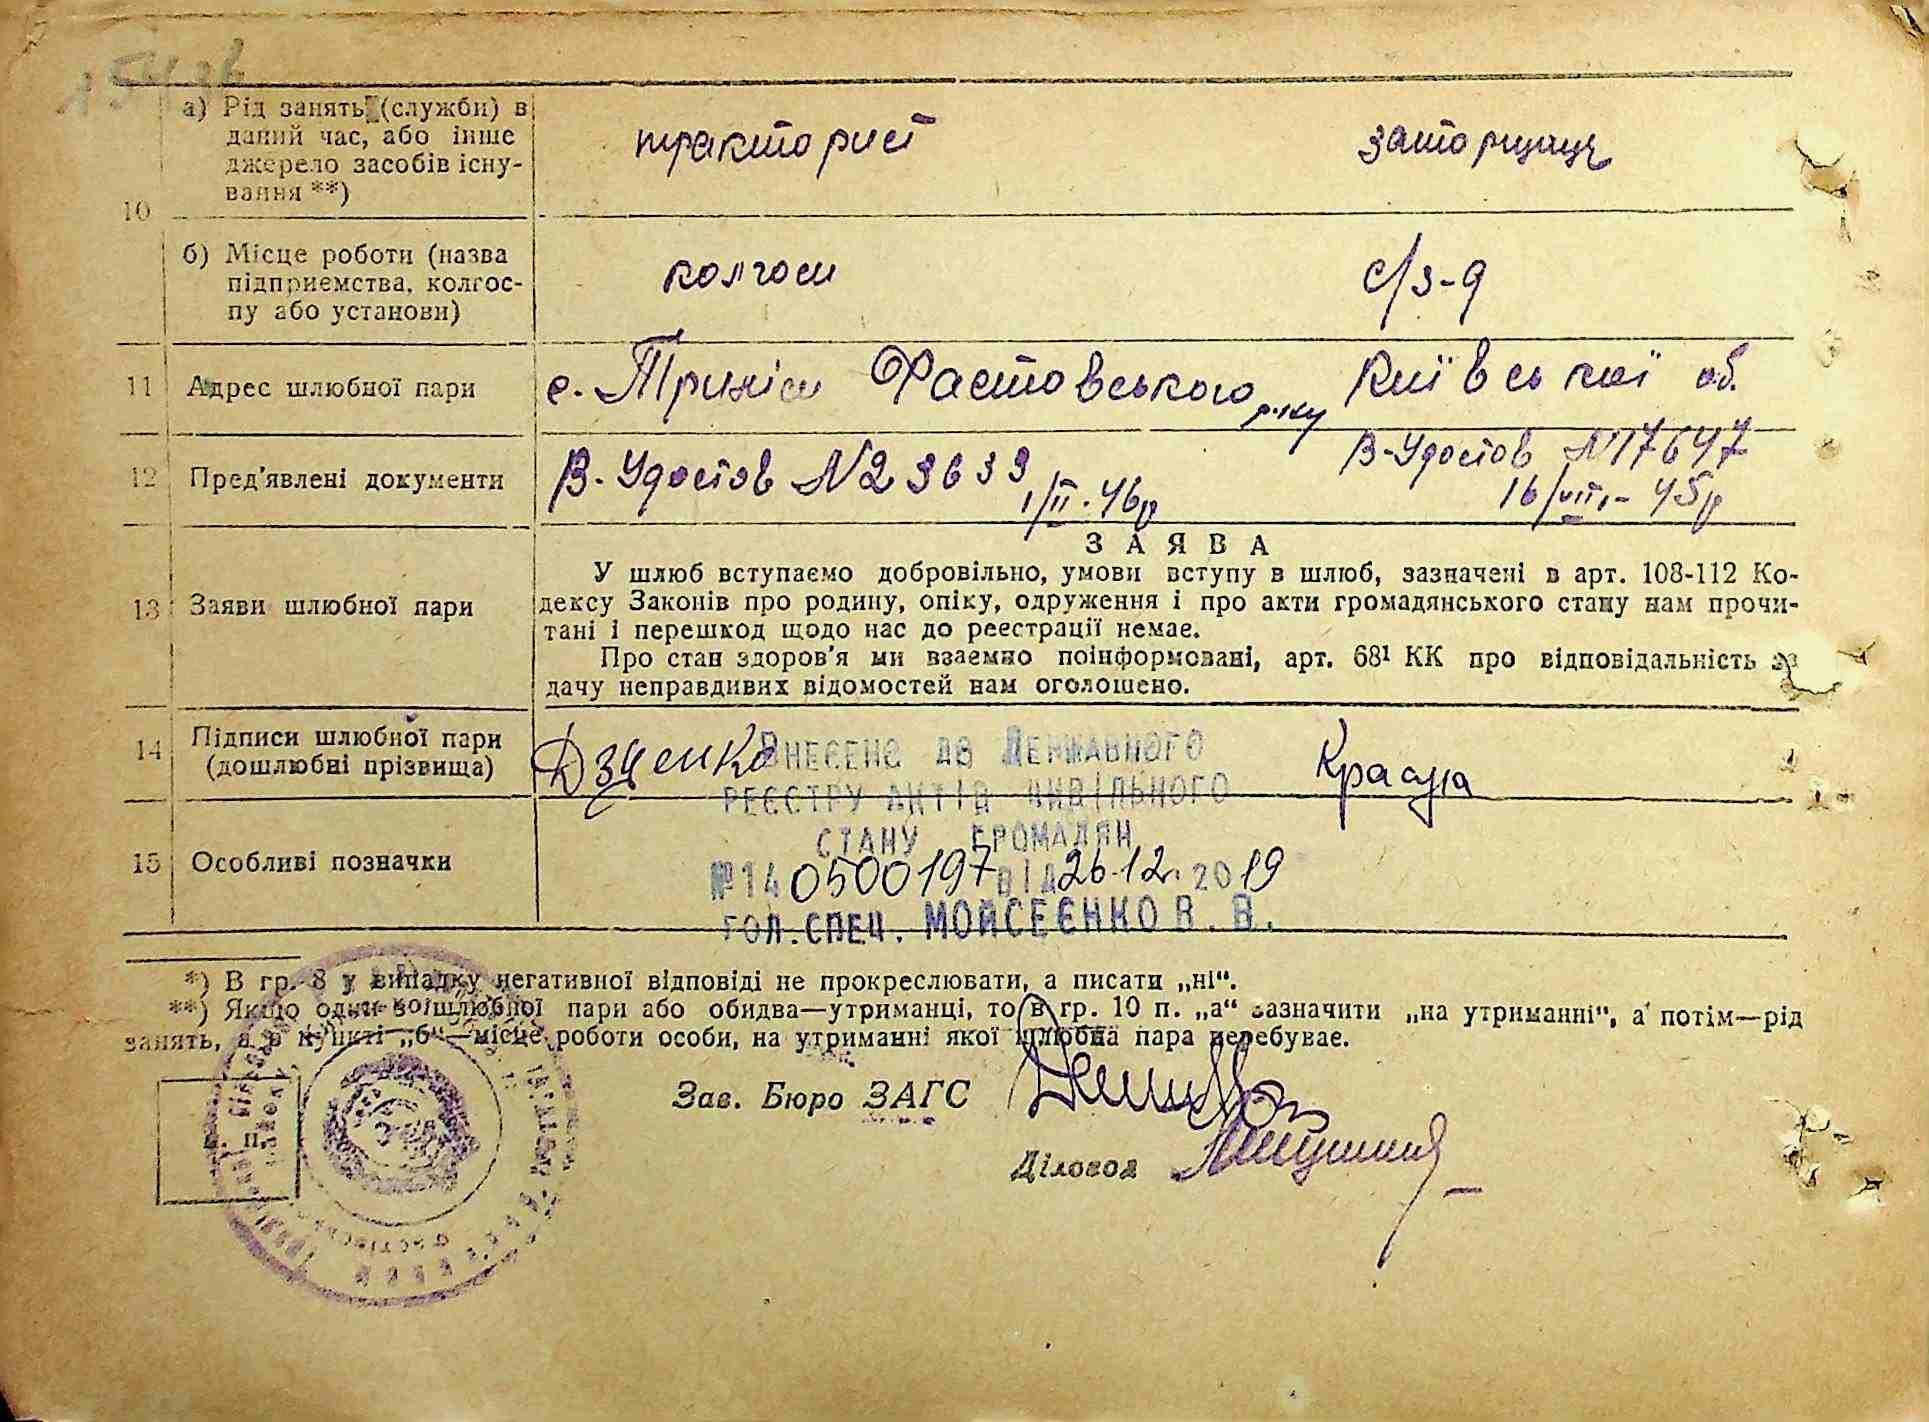 а) Рід занять (служби) в
даний час, або інше
джерело засобів існу-
вання **)
тракторист
10
б) Місце роботи (назва
підприємства, колгос-
пу або установи)
колгосп
с/з-д
11 Адрес шлюбної пари
с. Триліси Фастовського р-ну Київської об.
12 Пред'явлені документи
В-Удостов №23633
1/II.46р
В-Удостов №17647
16/VIII-45р
ЗАЯВА
13 Заяви шлюбної пари
У шлюб вступаємо добровільно, умови вступу в шлюб, зазначені в арт. 108-112 Ко-
дексу Законів про родину, опіку, одруження і про акти громадянського стану нам прочи-
тані і перешкод щодо нас до реєстрації немає.
Про стан здоров'я ми взаємно поінформовані, арт. 68¹ КК про відповідальність за
дачу неправдивих відомостей нам оголошено.
14 Підписи шлюбної пари
(дошлюбні прізвища)
Внесено до Державного
реєстру актів цивільного
стану громадян
№140500197 від 26.12. 2019
Гол.спец. Мойсеєнко В. В.
15 Особливі позначки
*) В гр. 8 у випадку негативної відповіді не прокреслювати, а писати „ні“.
**) Якщо один зо шлюбної пари або обидва—утриманці, то в гр. 10 п. „а“ зазначити „на утриманні“, а потім—рід
занять, а в пункті „б“—місце роботи особи, на утриманні якої шлюбна пара перебуває.
Зав. Бюро ЗАГС
Діловод